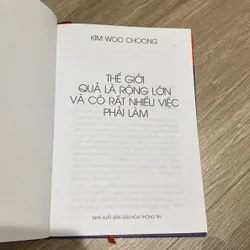 KIM WOO CHOONG
THẾ GIỚI
QUẢ LÀ RỘNG LỚN
VÀ CÓ RẤT NHIỀU VIỆC
PHẢI LÀM
NHÀ XUẤT BẢN VĂN HÓA THÔNG TIN